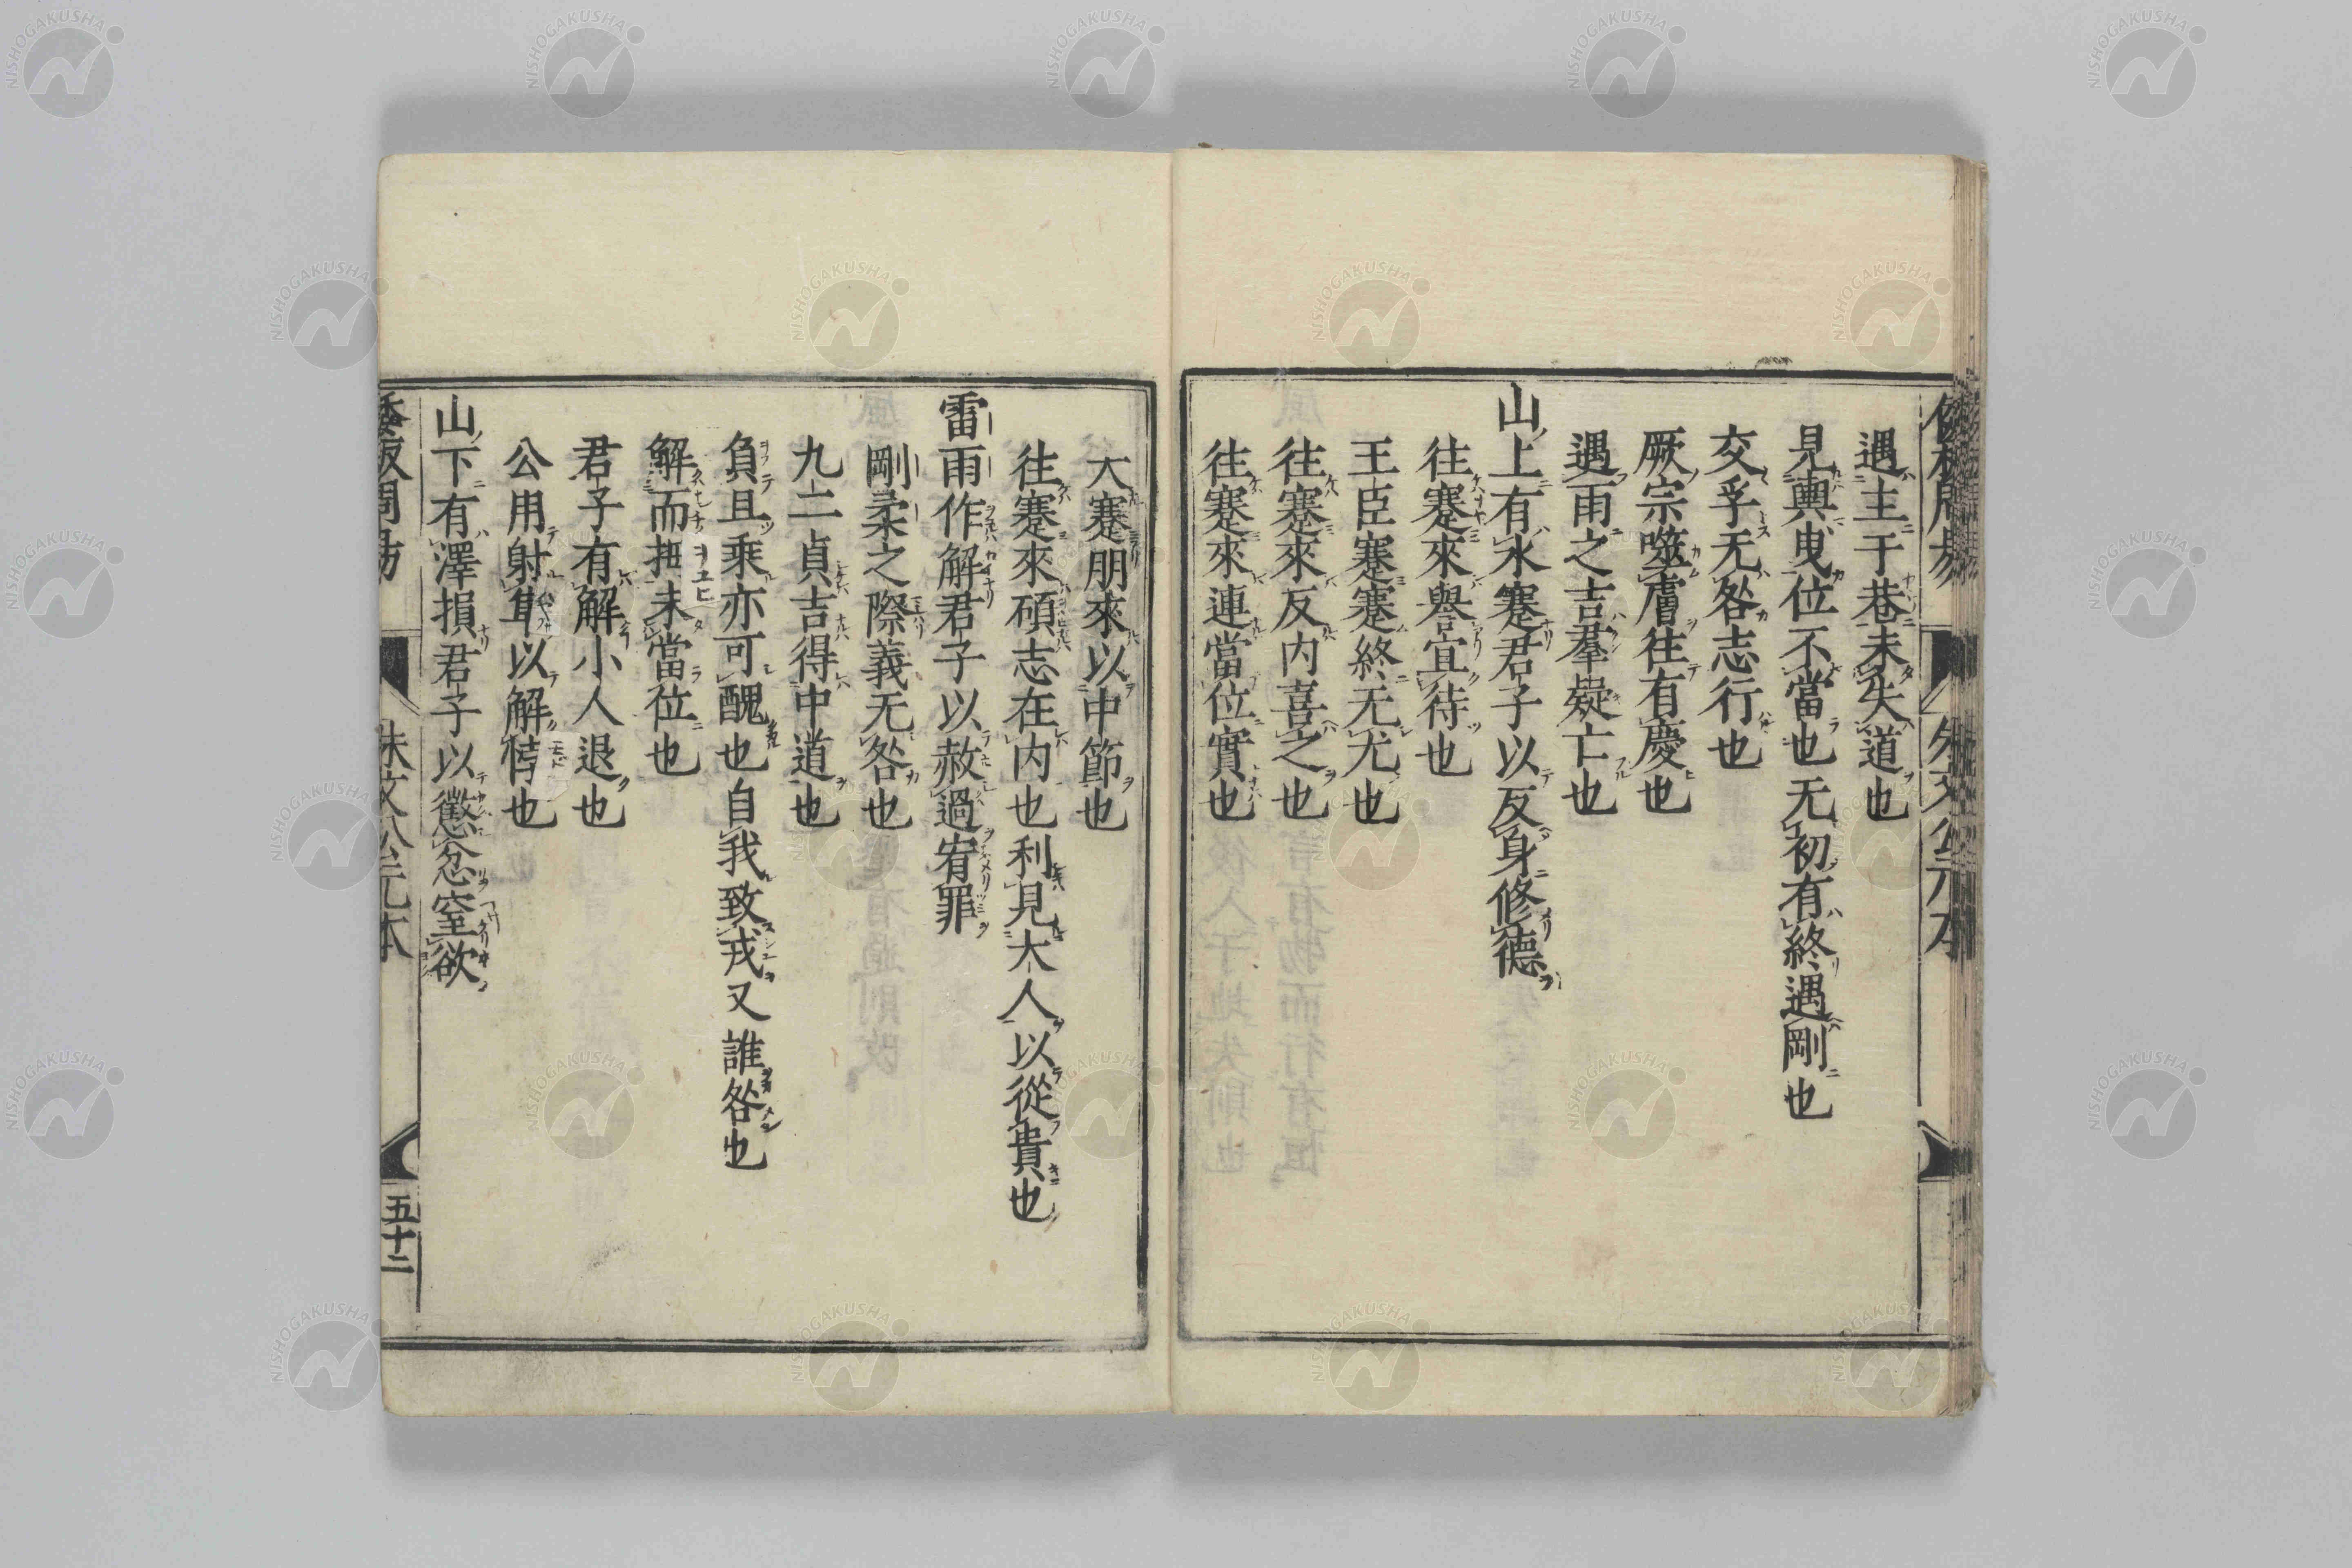 遇主于巷未失道也
見輿曳位不當也无初有終遇剛也
交孚无咎志行也
厥宗噬膚往有慶也
遇雨之吉羣疑亡也
山上有水蹇君子以反身修德
往蹇來譽宜待也
王臣蹇蹇終无尤也
往蹇來反内喜之也
往蹇來連當位實也
大蹇朋來以中節也
往蹇來碩志在内也利見大人以從貴也
雷雨作解君子以赦過宥罪
剛柔之際義无咎也
九二貞吉得中道也
負且乘亦可醜也自我致戎又誰咎也
解而拇未當位也
君子有解小人退也
公用射隼以解悖也
山下有澤損君子以懲忿窒欲
五十二
NISHOGAKUSHA